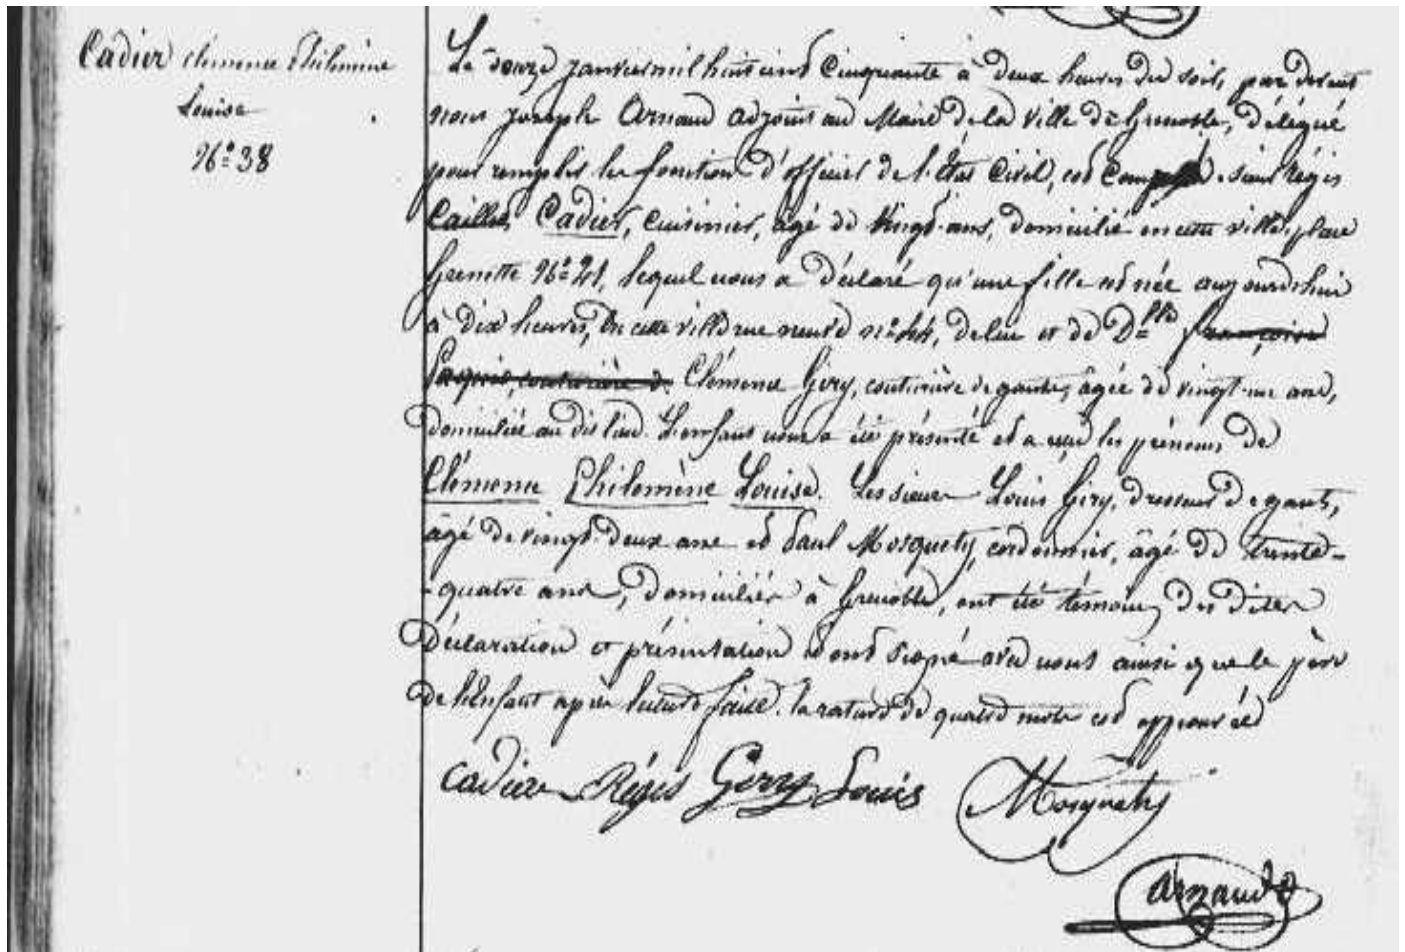 Cadier Clémence Philomène
Louise
N.° 38
Le douze janvier mil huit cent cinquante à deux heures du soir, par devant
nous Joseph Arnaud adjoint au Maire de la ville de Grenoble, délégué
pour remplir les fonction d'officier de l'état Civil, est comparu sieur Régis
Cadier, cuisinier, âgé de vingt ans, domicilié en cette ville, place
Grenette N.° 21, lequel nous a déclaré qu'une fille est née aujourdhui
à dix heures, en cette ville rue neuve n.° 44, de lui et de D.lle françoise
couturière de Clémence Giry, couturière de gants, âgée de vingt-un ans,
domiciliée au dit lieu. L'enfant nous a été présenté et a reçu les prénoms de
Clémence Philomène Louise. Les sieurs Louis Giry, dresseur de gants,
âgé de vingt deux ans et Paul Mosquety, cordonnier, âgé de trente-
-quatre ans, domiciliés à Grenoble, ont été témoins des dites
déclaration et présentation et ont signé avec nous ainsi que le père
de l'Enfant après lecture faite. la rature de quatre mots est approuvée
Cadier Régis Girry Louis Mosquety
Arnaud